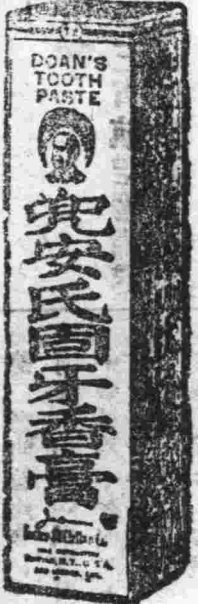 DOAN'S
TOOTH
PASTE
兜安氏固牙香膏